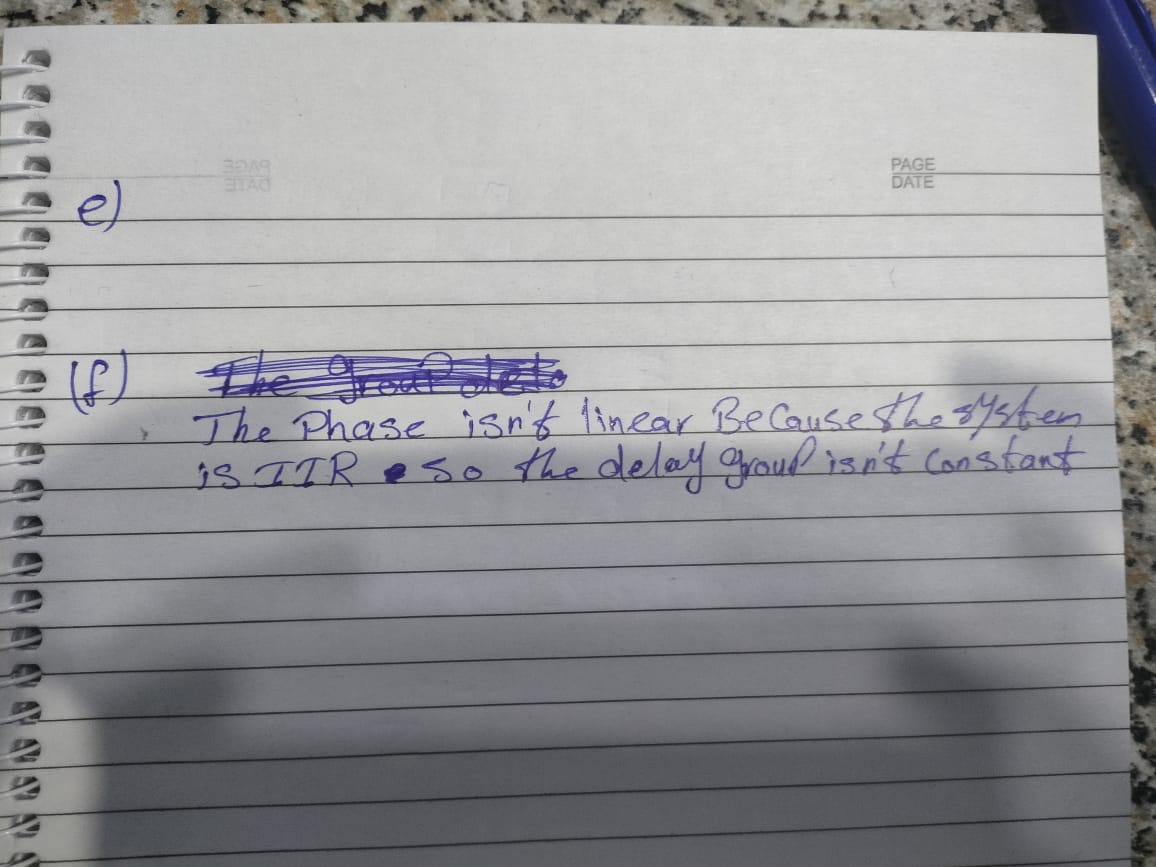 PAGE
DATE
e)
(f) The group dela
The Phase isn't linear Because the system
is IIR so the delay group isn't Constant